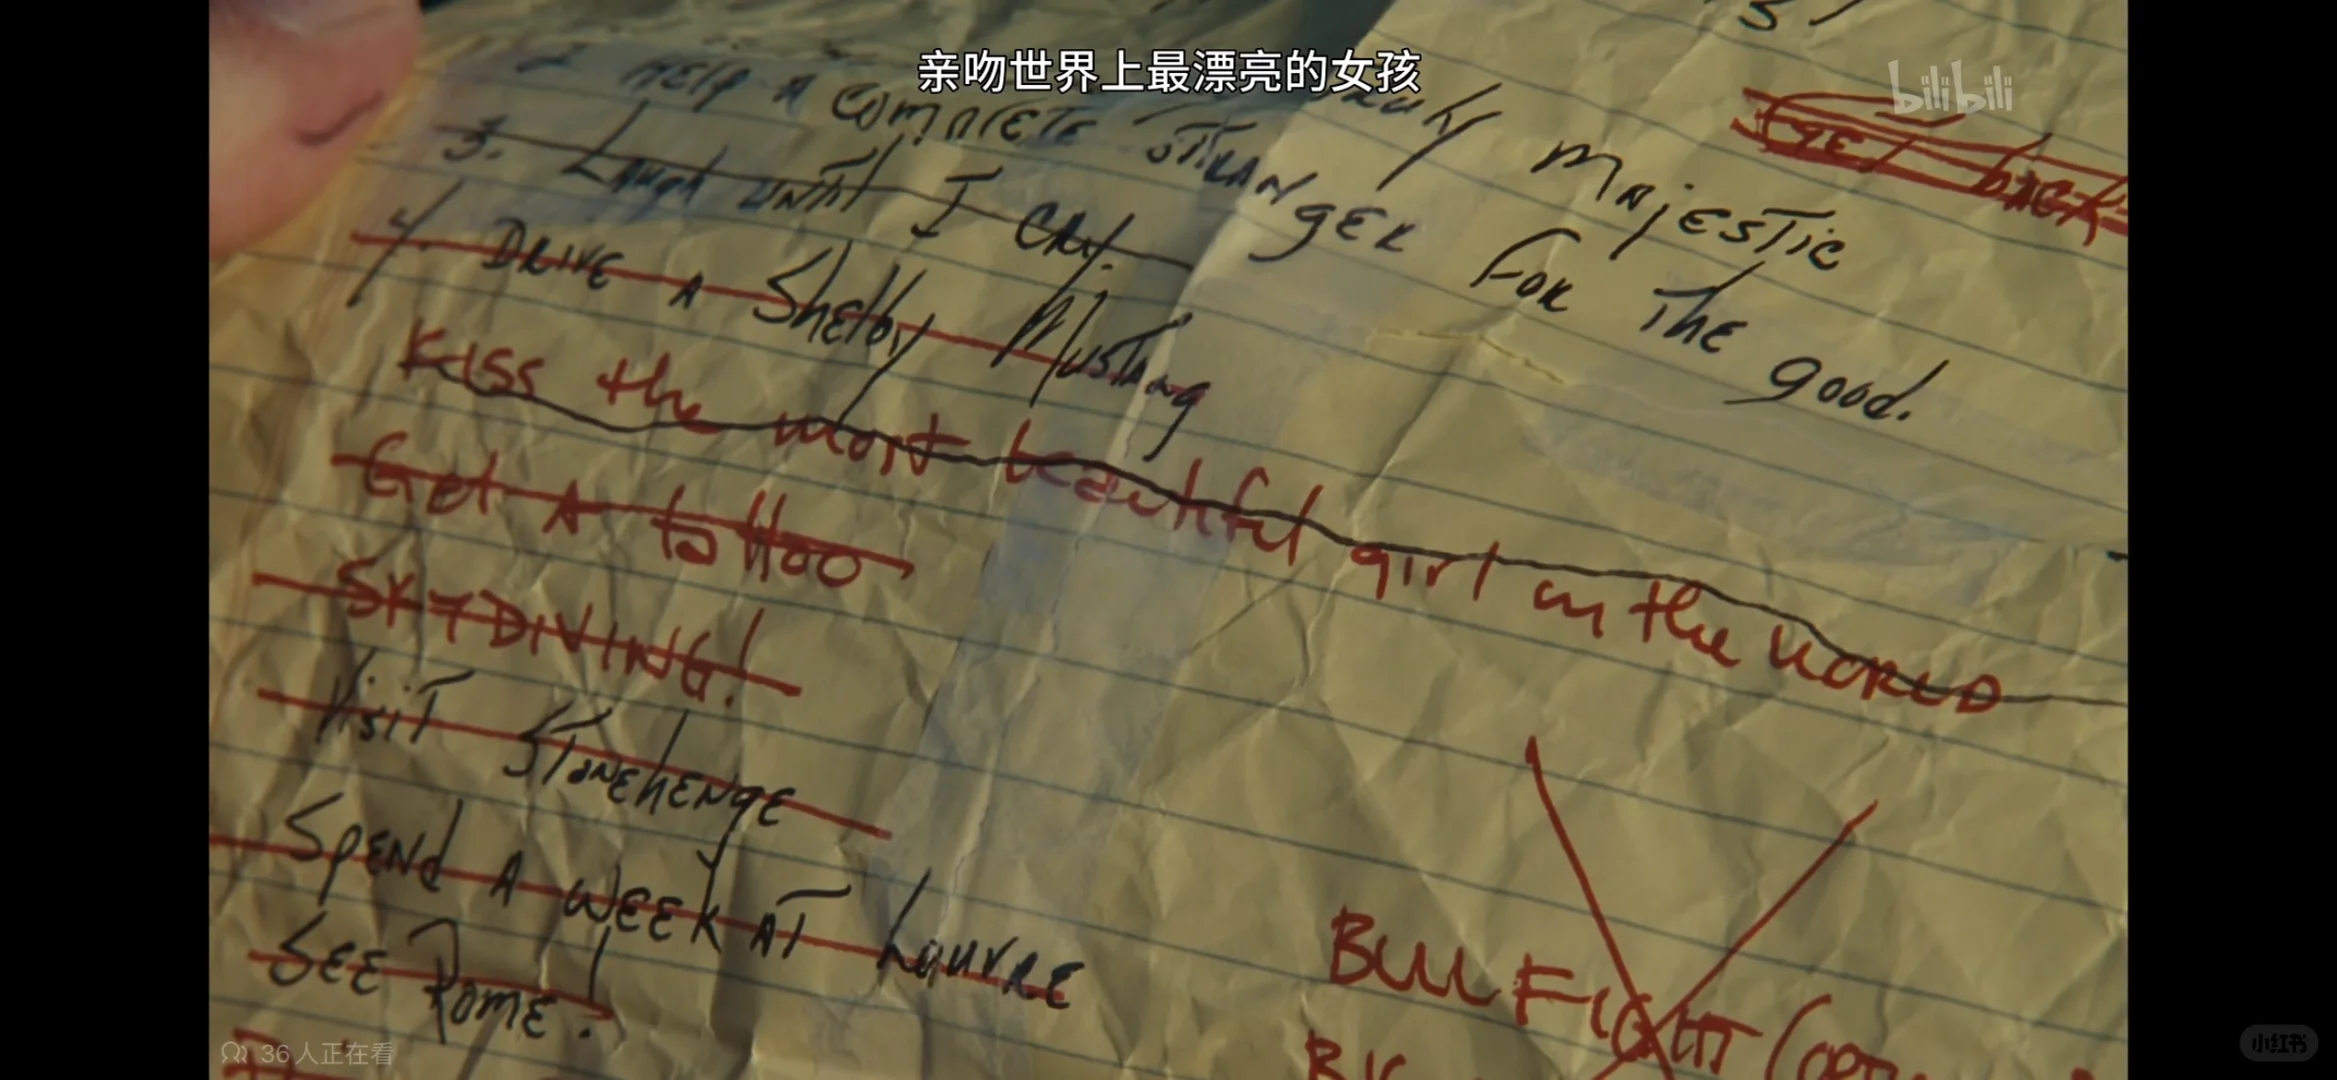 亲吻世界上最漂亮的女孩
bilibili
majestic
2 HELP A COMPLETE STRANGER FOR THE good.
3. LAUgh UNTIL I CRY.
4. DRIVE A Shelby MUSTANg
Kiss the most beautiful girl in the WORLD
Get A tattoo
SKYDIVING!
Visit STONEhENgE
SPENd A WEEK AT LOUVRE
SEE ROME!
BULL FIGHT
36人正在看
小红书